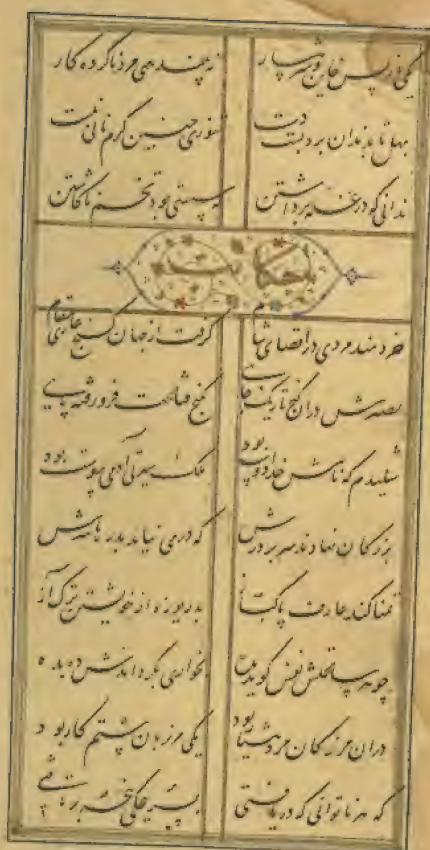 یکی باز پس خاین و شرمسار همی مزد ناکرده کار
بهل تا بدندان برد پشت دست تنوری چنین گرم نانی نبست
بدانی که در غله برداشتن که سستی بود تخم ناکاشتن
حکایت
خردمند مردی در اقصای شام گرفت از جهان کنج غاری مقام
بصبرش دران کنج تاریک جای بگنج قناعت فرو رفته پای
شنیدم که نامش خدادوست بود ملک سیرتی آدمی پوست بود
بزرگان نهادند سر بر درش که در می نیامد بدرها سرش
تمنا کند عارف پاکباز بدریوزه از خویشتن ترک آز
چو هر ساعتش نفس گوید بده بخواری بگرداندش ده بده
دران مرز کان مرد هشیار بود یکی مرزبان ستمکار بود
که هر ناتوانی که دریافتی بسرپنجگی پنجه برتافتی